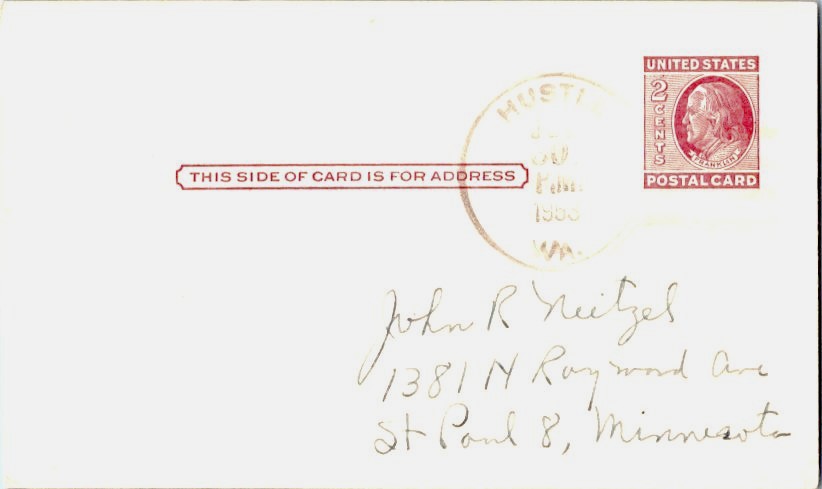 UNITED STATES
2 CENTS
FRANKLIN
POSTAL CARD
HUSTLE
30
P.M.
1953
VA.
THIS SIDE OF CARD IS FOR ADDRESS
John R Neitzel
1381 N Raymond Ave
St Paul 8, Minnesota